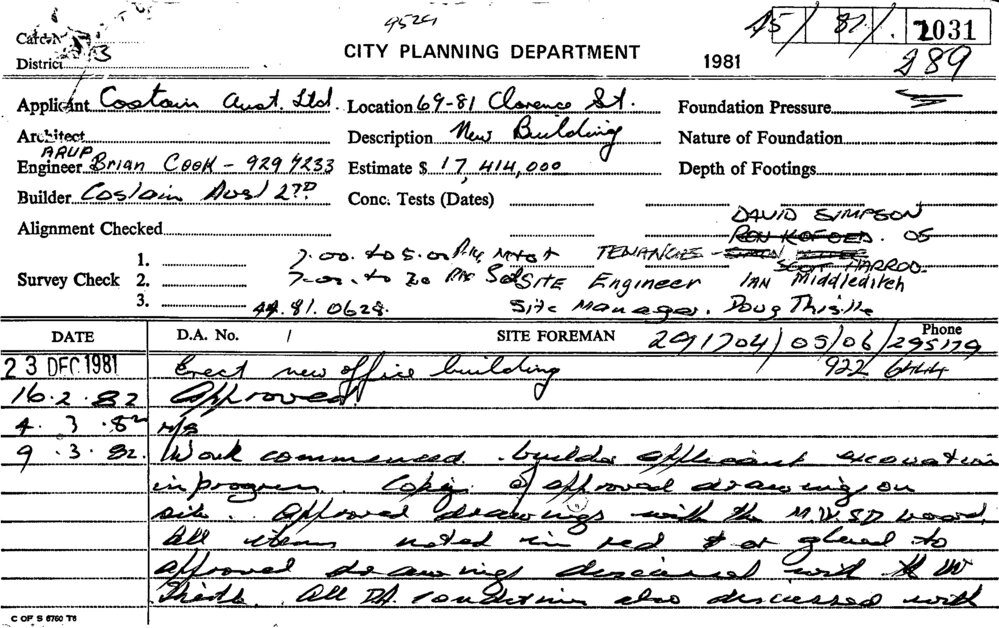 9529
45/81/.1031
Card No 3
District
CITY PLANNING DEPARTMENT
1981
289
Applicant Costain Aust. Ltd. Location 69-81 Clarence St. Foundation Pressure
Architect Description New Building Nature of Foundation
ARUP
Engineer Brian Cook - 929 7233 Estimate $ 17,414,000 Depth of Footings
Builder Costain Aust LTD Conc. Tests (Dates)
DAVID SIMPSON
Alignment Checked RON KOFOED. OS
1. 7.00. to 5.00 TENANCIES HARROD
Survey Check 2. 7.00. to SITE Engineer IAN Middleditch
3. 44.81.0628. Site Manager. Doug
DATE D.A. No. / SITE FOREMAN Phone 291704/05/06/295179
23 DEC 1981 Erect new office building 922 6444
16.2.82 Approved
4.3.82 N/S
9.3.82. Work commenced. builder applicant excavation
in progress. Copy of approved drawing on
site. Approved drawings with the M.W.S.D board.
All items noted in red & or glued to
approved drawings discussed with Mr
All DA. conditions also discussed with
C OF S 6760 T6